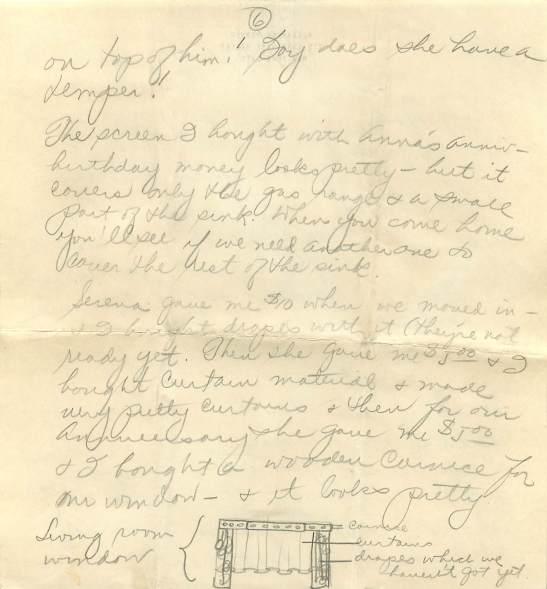 6
on top of him! Boy does she have a
temper!
The screen I bought with Anna's anniv-
birthday money looks pretty - but it
covers only the gas range & a small
part of the sink. When you come home
you'll see if we need another one to
cover the rest of the sink.
Serena gave me $10 when we moved in -
& I bought drapes with it (they're not
ready yet. Then she gave me $5.00 & I
bought curtain material & made
very pretty curtains & then for our
Anniversary she gave me $5.00
& I bought a wooden cornice for
our window - & it looks pretty
Living room
window
cornice
curtains
drapes which we
haven't got yet.